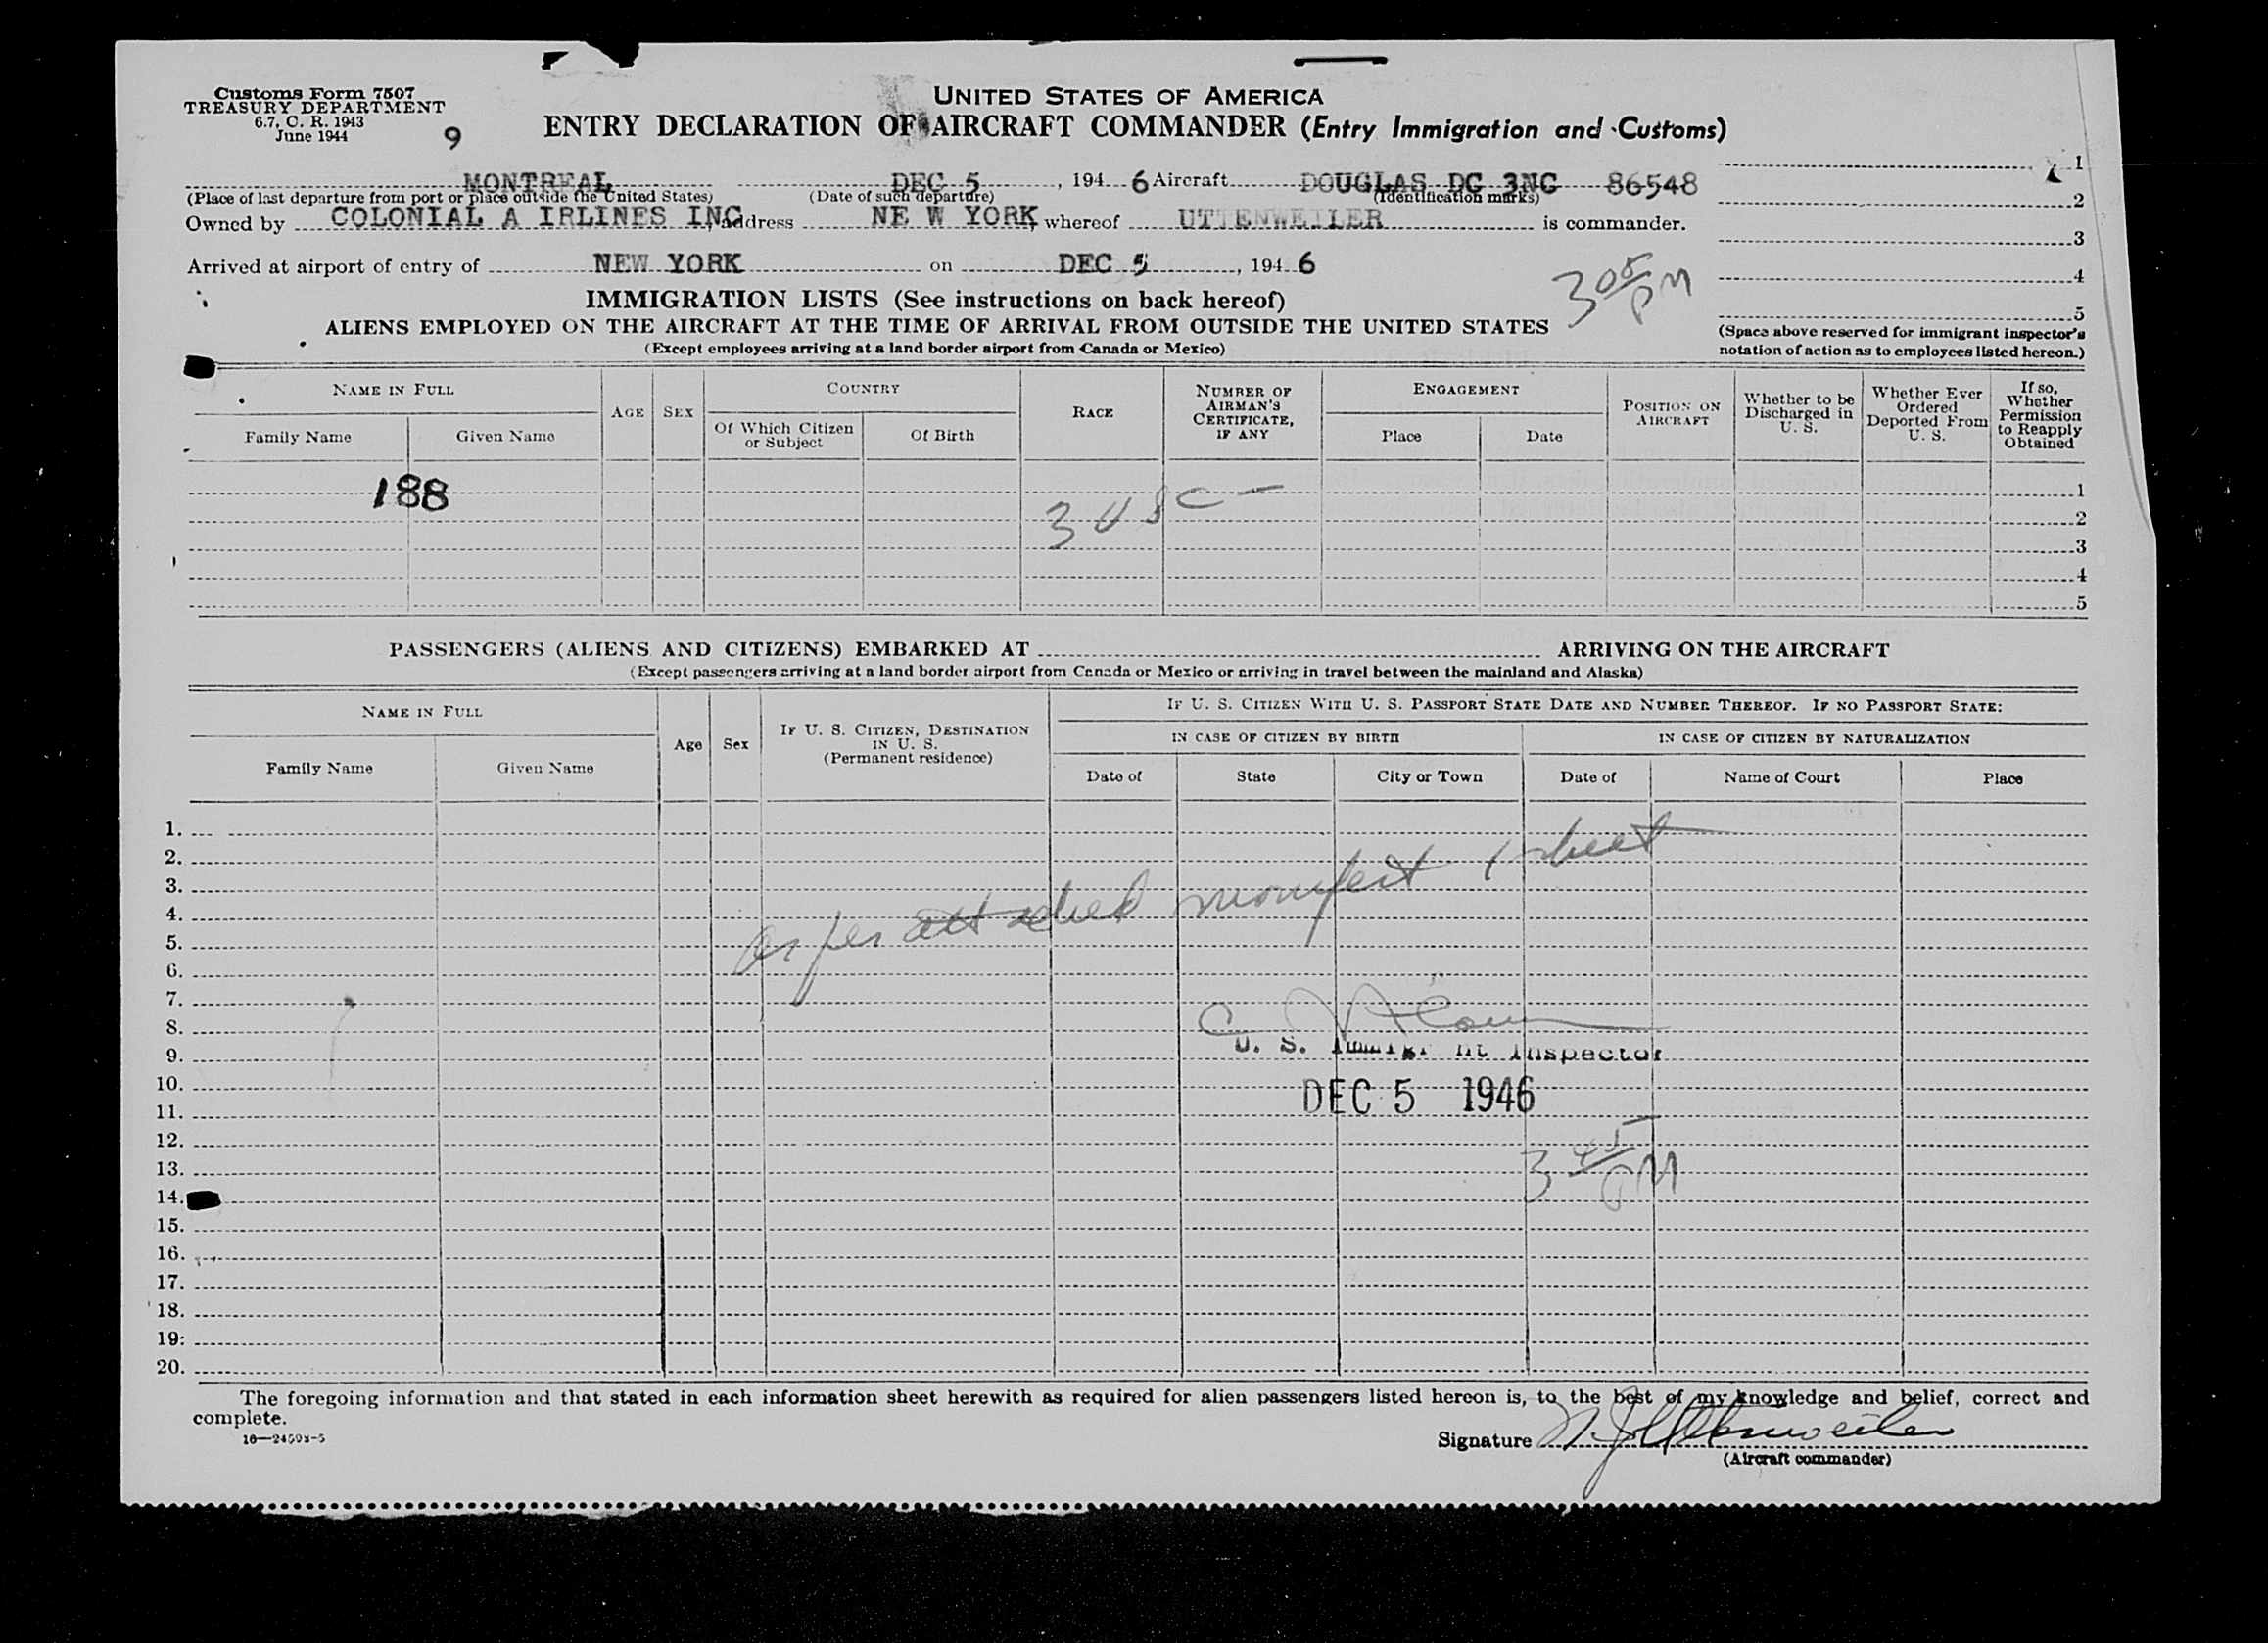 Customs Form 7507
TREASURY DEPARTMENT
6.7, C. R. 1943
June 1944
9
UNITED STATES OF AMERICA
ENTRY DECLARATION OF AIRCRAFT COMMANDER (Entry Immigration and Customs)
MONTREAL DEC 5, 1946 Aircraft DOUGLAS DC 3NC 86548
(Place of last departure from port or place outside the United States) (Date of such departure) (Identification marks)
Owned by COLONIAL A IRLINES INC, address NE W YORK, whereof UTTENWEILER is commander.
Arrived at airport of entry of NEW YORK on DEC 5, 1946
3 05 PM
1
2
3
4
5
(Space above reserved for immigrant inspector's
notation of action as to employees listed hereon.)
IMMIGRATION LISTS (See instructions on back hereof)
ALIENS EMPLOYED ON THE AIRCRAFT AT THE TIME OF ARRIVAL FROM OUTSIDE THE UNITED STATES
(Except employees arriving at a land border airport from Canada or Mexico)
NAME IN FULL
Family Name
Given Name
AGE
SEX
COUNTRY
Of Which Citizen
or Subject
Of Birth
RACE
NUMBER OF
AIRMAN'S
CERTIFICATE,
IF ANY
ENGAGEMENT
Place
Date
POSITION ON
AIRCRAFT
Whether to be
Discharged in
U. S.
Whether Ever
Ordered
Deported From
U. S.
If so,
Whether
Permission
to Reapply
Obtained
188
3 USC —
1
2
3
4
5
PASSENGERS (ALIENS AND CITIZENS) EMBARKED AT ARRIVING ON THE AIRCRAFT
(Except passengers arriving at a land border airport from Canada or Mexico or arriving in travel between the mainland and Alaska)
NAME IN FULL
Family Name
Given Name
Age
Sex
IF U. S. CITIZEN, DESTINATION
IN U. S.
(Permanent residence)
IF U. S. CITIZEN WITH U. S. PASSPORT STATE DATE AND NUMBER THEREOF. IF NO PASSPORT STATE:
IN CASE OF CITIZEN BY BIRTH
IN CASE OF CITIZEN BY NATURALIZATION
Date of
State
City or Town
Date of
Name of Court
Place
1.
2.
3.
4.
5.
6.
7.
8.
9.
10.
11.
12.
13.
14.
15.
16.
17.
18.
19.
20.
as per attached manifest 1 sheet
U. S. Immigrant Inspector
DEC 5 1946
3 45 PM
The foregoing information and that stated in each information sheet herewith as required for alien passengers listed hereon is, to the best of my knowledge and belief, correct and
complete.
Signature
(Aircraft commander)